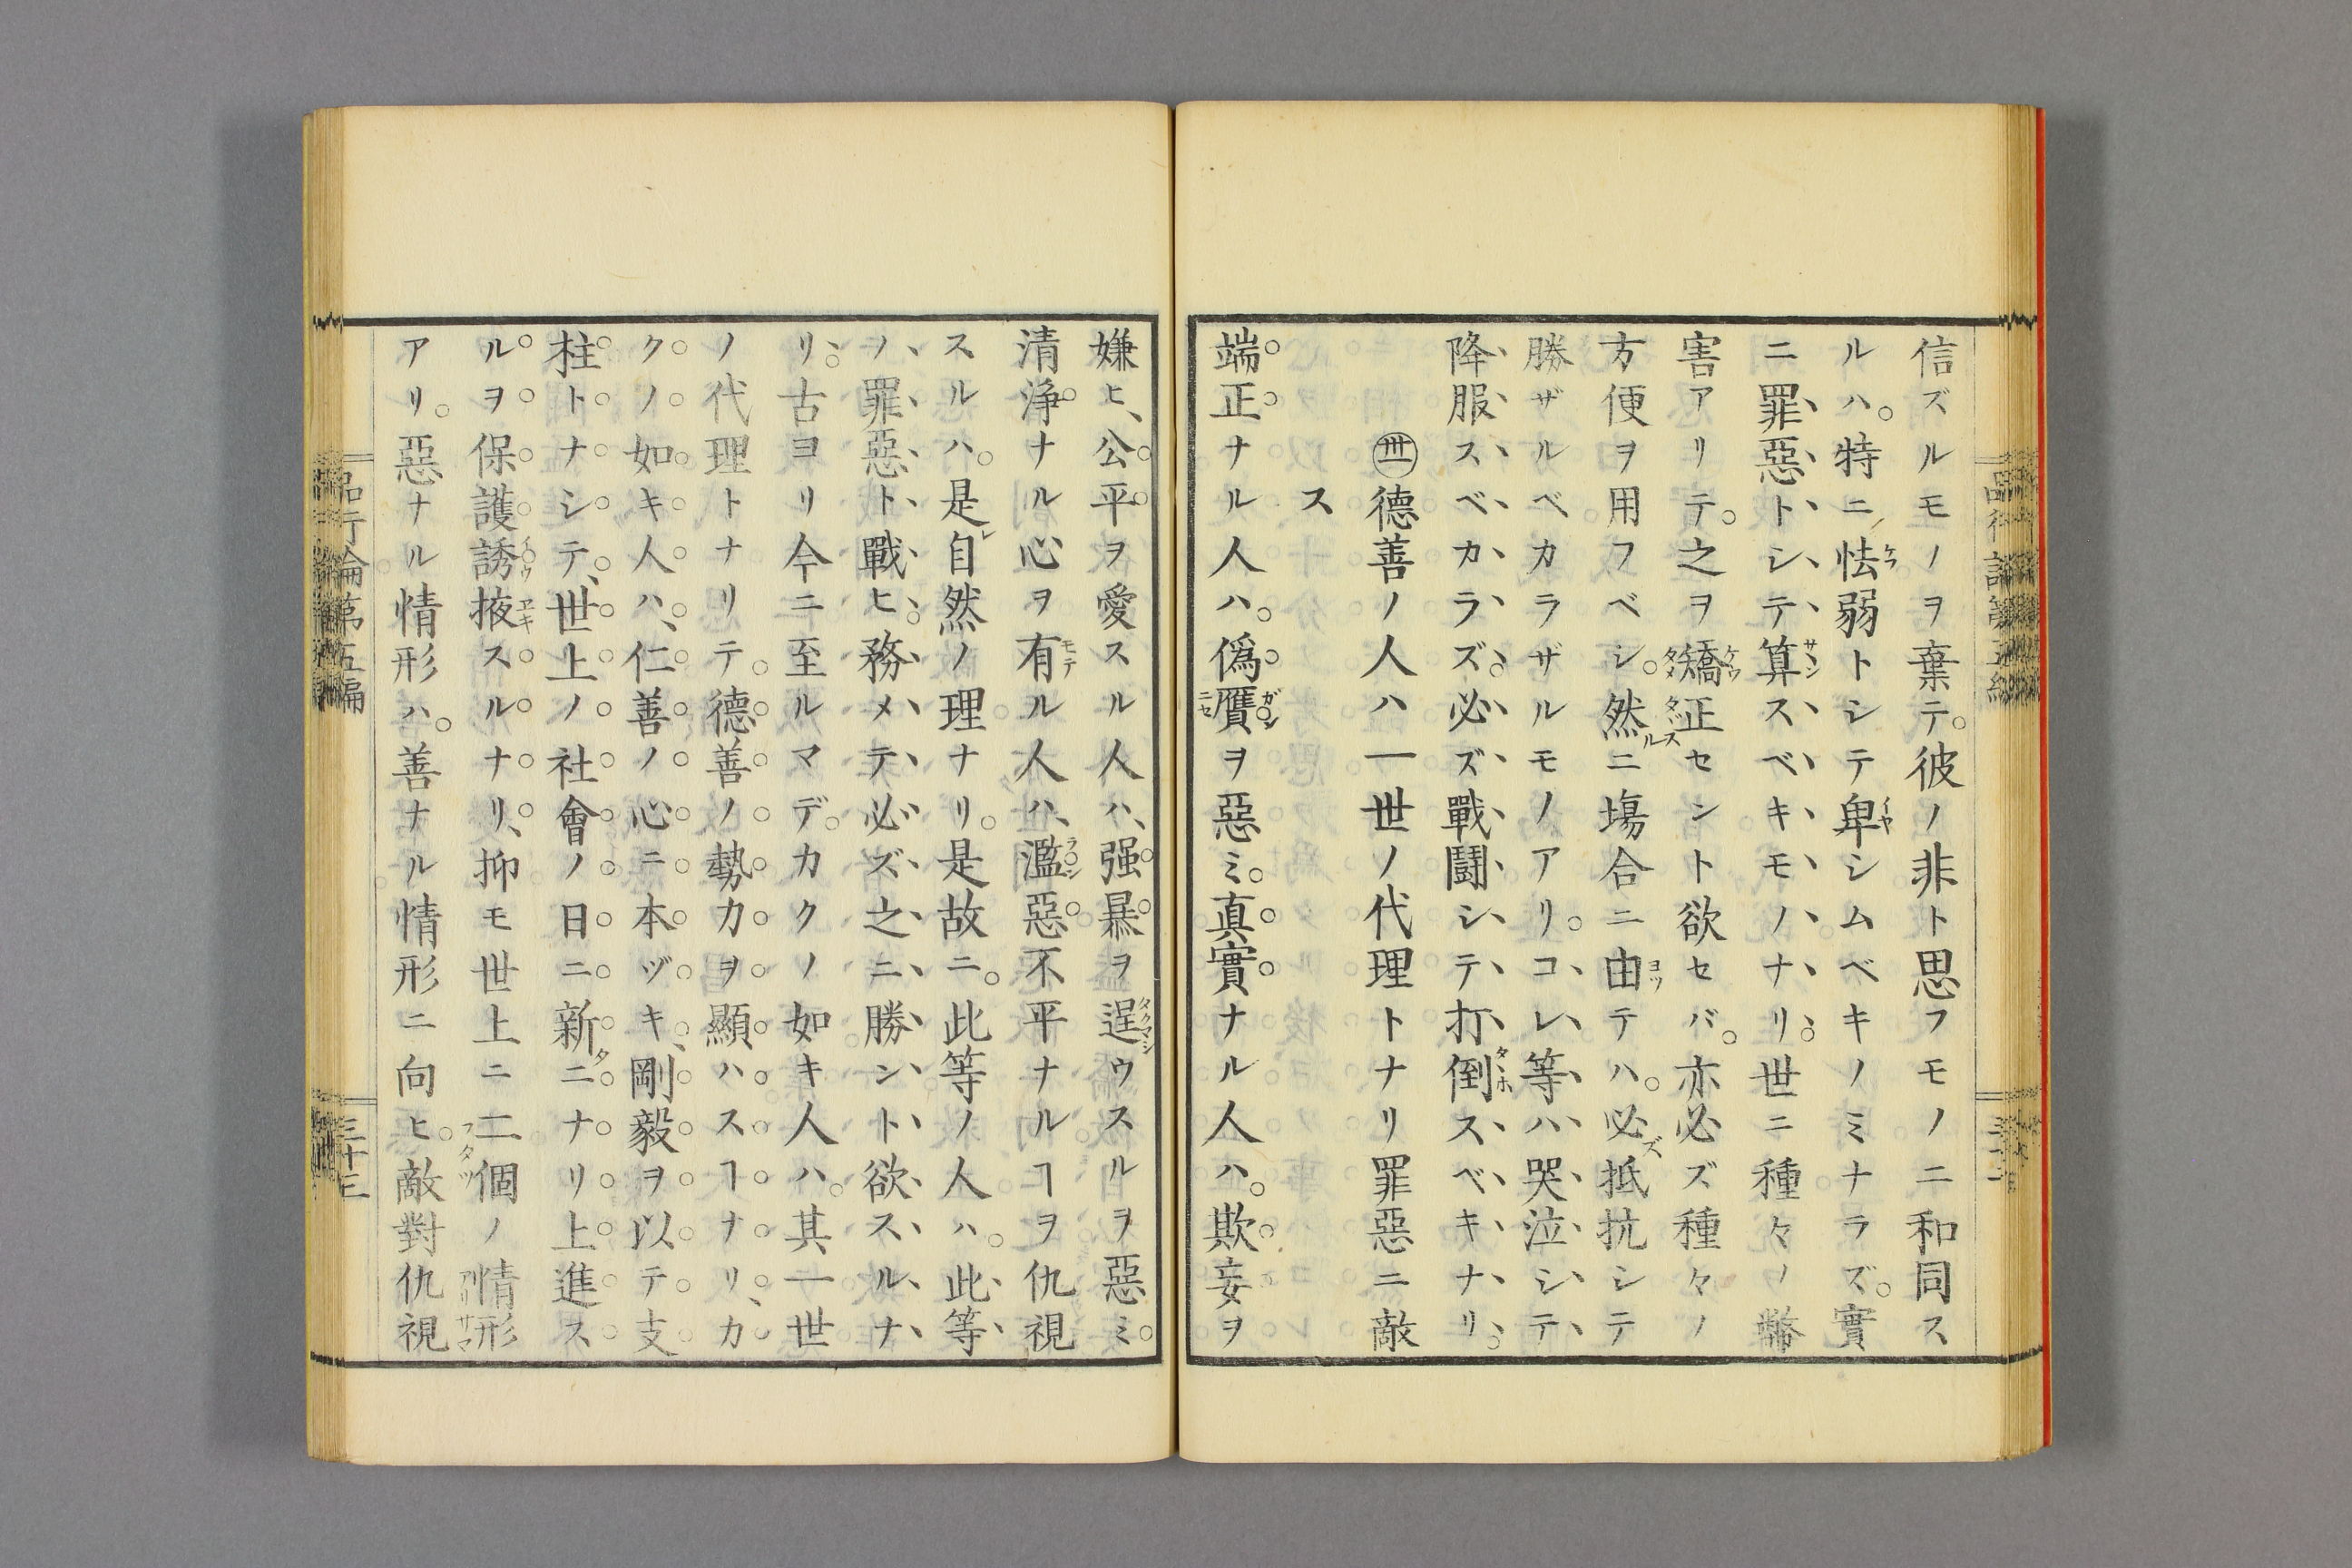 信ズルモノヲ棄テ。彼ノ非ト思フモノニ和同ス
ルハ。特ニ怯弱トシテ卑シムベキノミナラズ。實
ニ罪惡トシテ算スベキモノナリ。世ニ種々ノ弊
害アリテ。之ヲ矯正セント欲セバ。亦必ズ種々ノ
方便ヲ用フベシ。然ニ塲合ニ由テハ。必抵抗シテ
勝ザルベカラザルモノアリ。コレ等ハ哭泣シテ
降服スベカラズ。必ズ戰鬪シテ打倒スベキナリ。
㊂德善ノ人ハ一世ノ代理トナリ罪惡ニ敵
ス
端正ナル人ハ。僞贋ヲ惡ミ。真實ナル人ハ。欺妄ヲ
嫌ヒ、公平ヲ愛スル人ハ、强暴ヲ逞ウスルヲ惡ミ。
清淨ナル心ヲ有ル人ハ、濫惡不平ナルヿヲ仇視
スルハ。是自然ノ理ナリ。是故ニ。此等ノ人ハ。此等
ノ罪惡ト戰ヒ。務メテ必ズ之ニ勝ント欲スルナ
リ。古ヨリ今ニ至ルマデ。カクノ如キ人ハ。其一世
ノ代理トナリテ。德善ノ勢力ヲ顯ハスヿナリ、カ
クノ如キ人ハ、仁善ノ心ニ本ヅキ、剛毅ヲ以テ支
柱トナシテ、世上ノ社會ノ日ニ新ニナリ上進ス
ルヲ保護誘掖スルナリ、抑モ世上ニ二個ノ情形
アリ。惡ナル情形ハ。善ナル情形ニ向ヒ。敵對仇視
品行論第五編
三十三